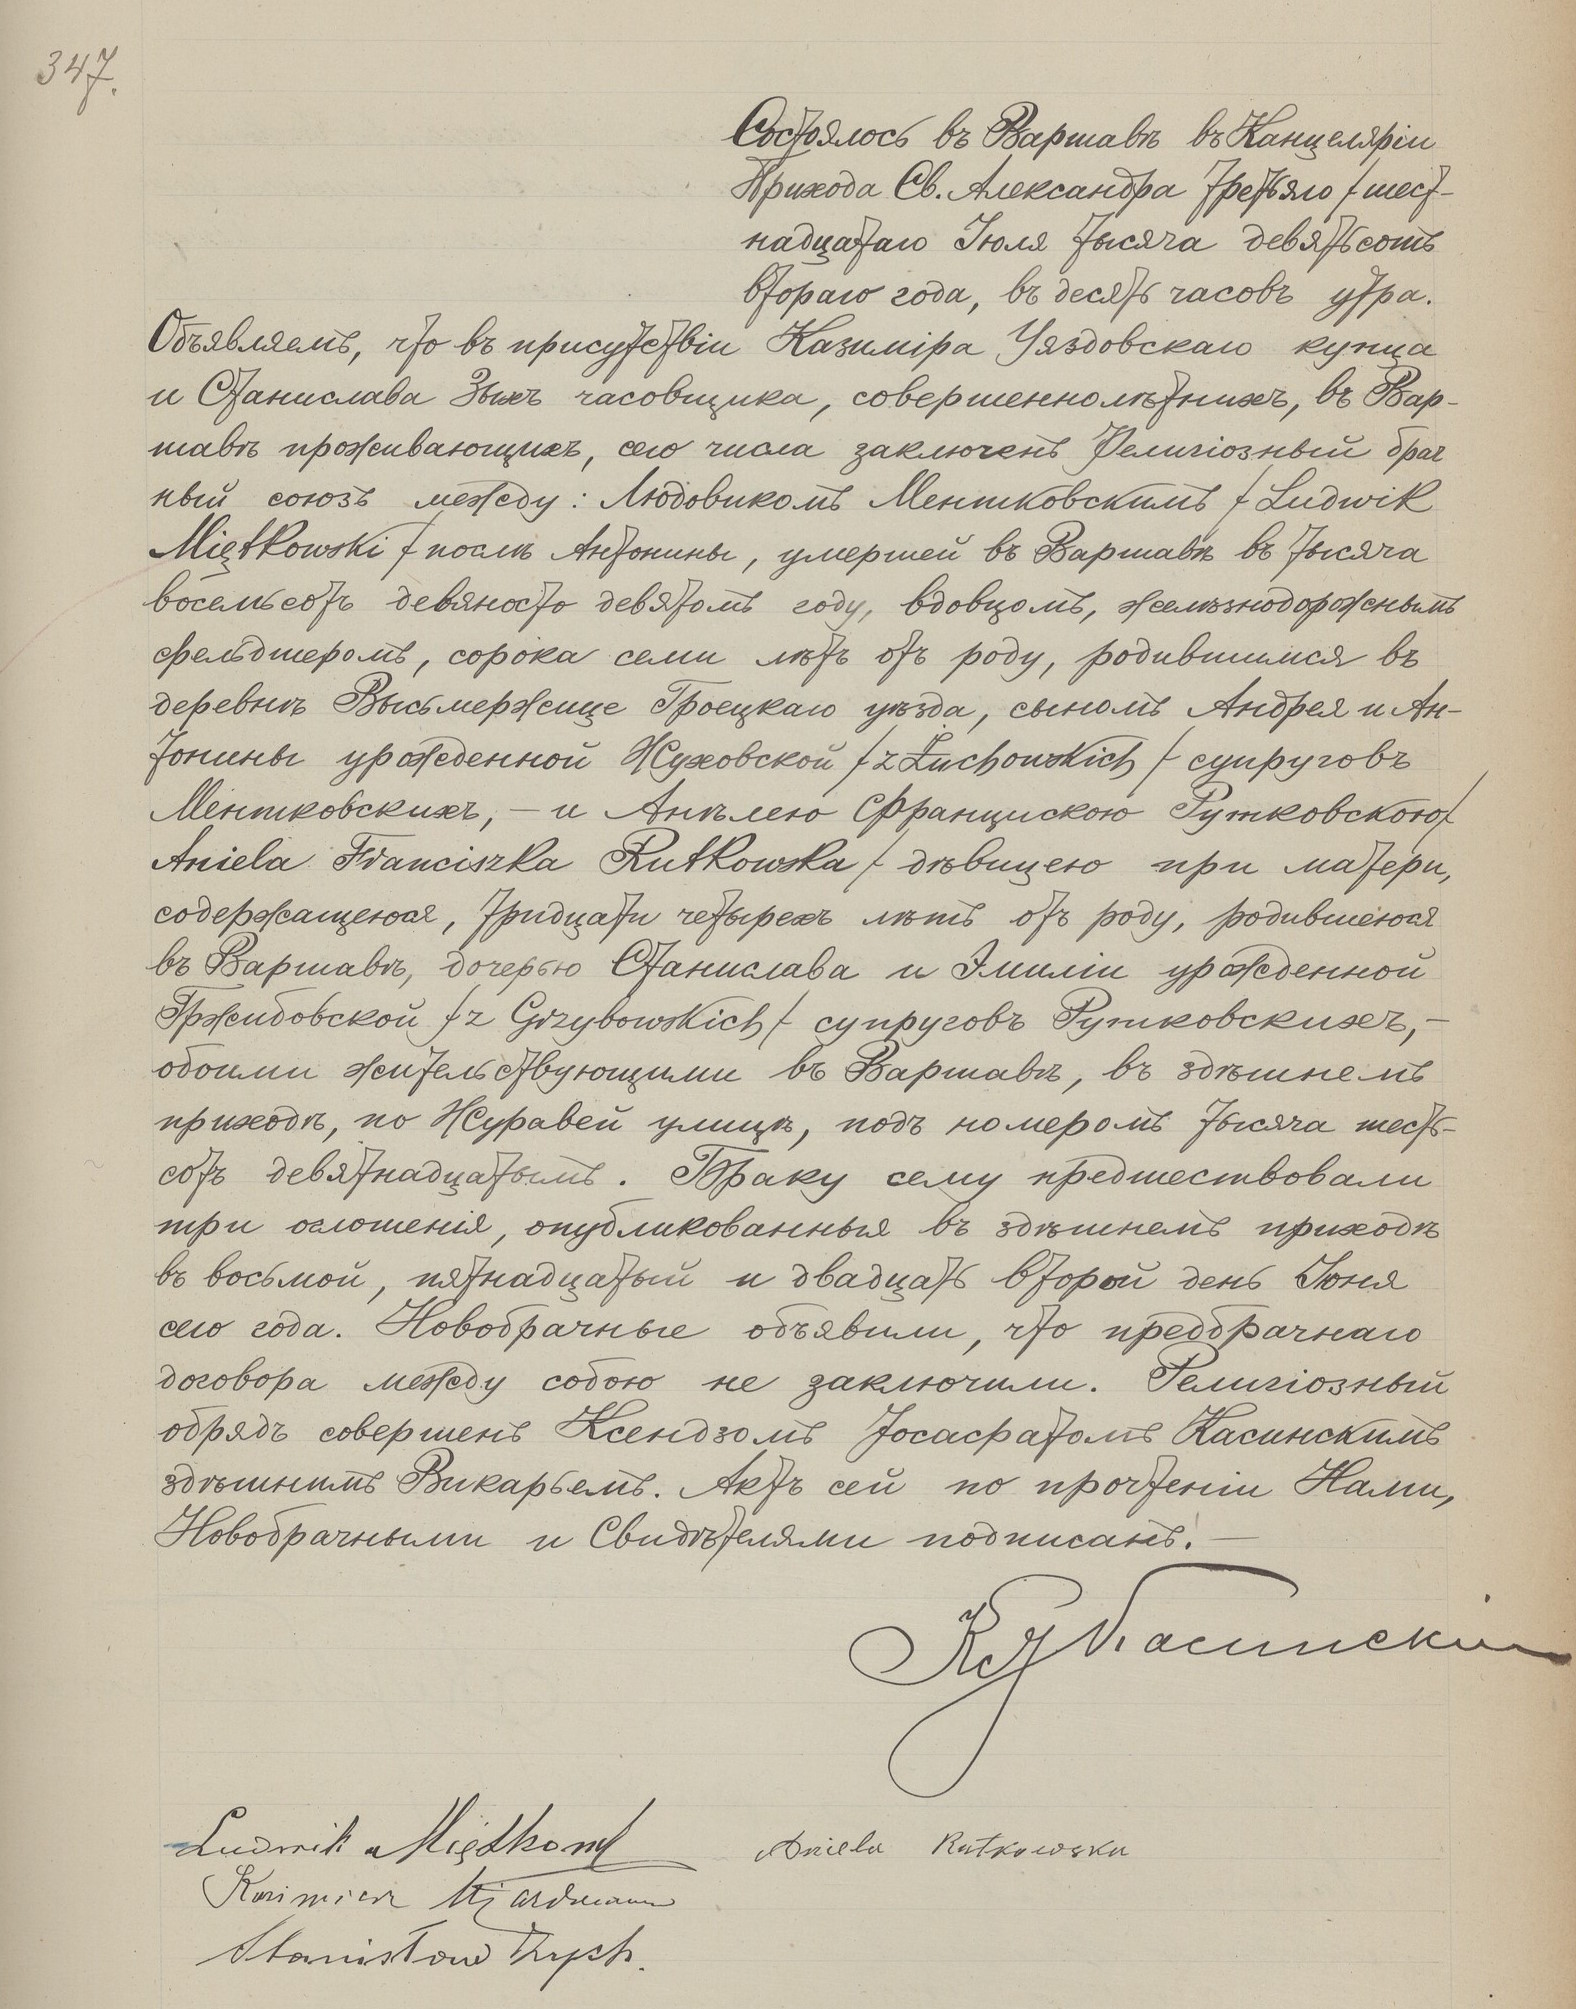 347.
Состоялось въ Варшавѣ въ Канцеляріи
Прихода Св. Александра третьяго / шест-
надцатаго Іюля тысяча девятьсотъ
втораго года, въ десять часовъ утра.
Объявляемъ, что въ присутствіи Казиміра Уяздовскаго купца
и Станислава Зыхъ часовщика, совершеннолѣтнихъ, въ Вар-
шавѣ проживающихъ, сего числа заключенъ Религіозный брач
ный союзъ между: Людовикомъ Ментковскимъ / Ludwik
Miętkowski / послѣ Антонины, умершей въ Варшавѣ въ тысяча
восемьсотъ девяносто девятомъ году, вдовцомъ, желѣзнодорожнымъ
фельдшеромъ, сорока семи лѣтъ отъ роду, родившимся въ
деревнѣ Высьмержице Гроецкаго уѣзда, сыномъ Андрея и Ан-
тонины урожденной Жуховской / z Żuchowskich / супруговъ
Ментковскихъ, — и Анѣлею Францискою Рутковскою /
Aniela Franciszka Rutkowska / дѣвицею при матери,
содержащеюся, тридцати четырехъ лѣтъ отъ роду, родившеюся
въ Варшавѣ, дочерью Станислава и Эмиліи урожденной
Гржибовской / z Grzybowskich / супруговъ Рутковскихъ, —
обоими жительствующими въ Варшавѣ, въ здѣшнемъ
приходѣ, по Журавей улицѣ, подъ номеромъ тысяча шесть-
сотъ девятнадцатымъ. Браку сему предшествовали
три оглошенія, опубликованныя въ здѣшнемъ приходѣ
въ восьмой, пятнадцатый и двадцать второй день Іюня
сего года. Новобрачные объявили, что предбрачнаго
договора между собою не заключили. Религіозный
обрядъ совершенъ Ксендзомъ Іосафатомъ Касинскимъ
здѣшнимъ Викарьемъ. Актъ сей по прочтеніи Нами,
Новобрачными и Свидѣтелями подписанъ. —
Касинскій
Ludwik Miętkowski Aniela Rutkowska
Kazimierz
Stanisław Zych.